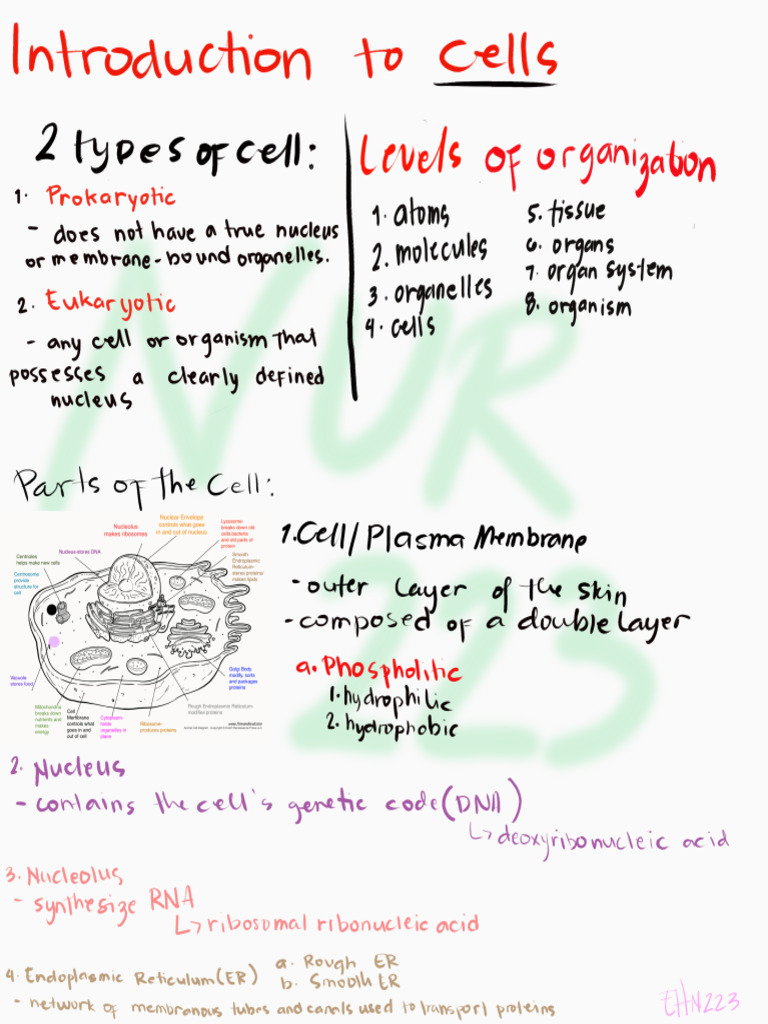 Introduction to cells
2 types of cell:
1. Prokaryotic
- does not have a true nucleus
or membrane-bound organelles.
2. Eukaryotic
- any cell or organism that
possesses a clearly defined
nucleus
Levels of organization
1. atoms
2. molecules
3. organelles
4. cells
5. tissue
6. organs
7. organ system
8. organism
NUR
223
Parts of the Cell:
Nucleolus
makes ribosomes
Nuclear Envelope
controls what goes
in and out of nucleus
Lysosome-
breaks down old
cells,bacteria
and old parts of
protein
Nucleus-stores DNA
Centrioles
helps make new cells
Centrosome
provide
structure for
cell
Smooth
Endoplasmic
Reticulum
stores proteins/
makes lipids
Vacuole
stores food
Golgi Body
modify, sorts
and packages
proteins
Mitochondria
breaks down
nutrients and
makes
energy
Cell
Membrane
controls what
goes in and
out of cell
Cytoplasm
holds
organelles in
place
Ribosome-
produces proteins
Rough Endoplasmic Reticulum
modifies proteins
1. Cell/Plasma Membrane
- outer layer of the skin
- composed of a double layer
a. Phospholitic
1. hydrophilic
2. hydrophobic
2. Nucleus
- contains the cell's genetic code (DNA)
↳ deoxyribonucleic acid
3. Nucleolus
- synthesize RNA
↳ ribosomal ribonucleic acid
4. Endoplasmic Reticulum (ER)
a. Rough ER
b. Smooth ER
- network of membranous tubes and canals used to transport proteins